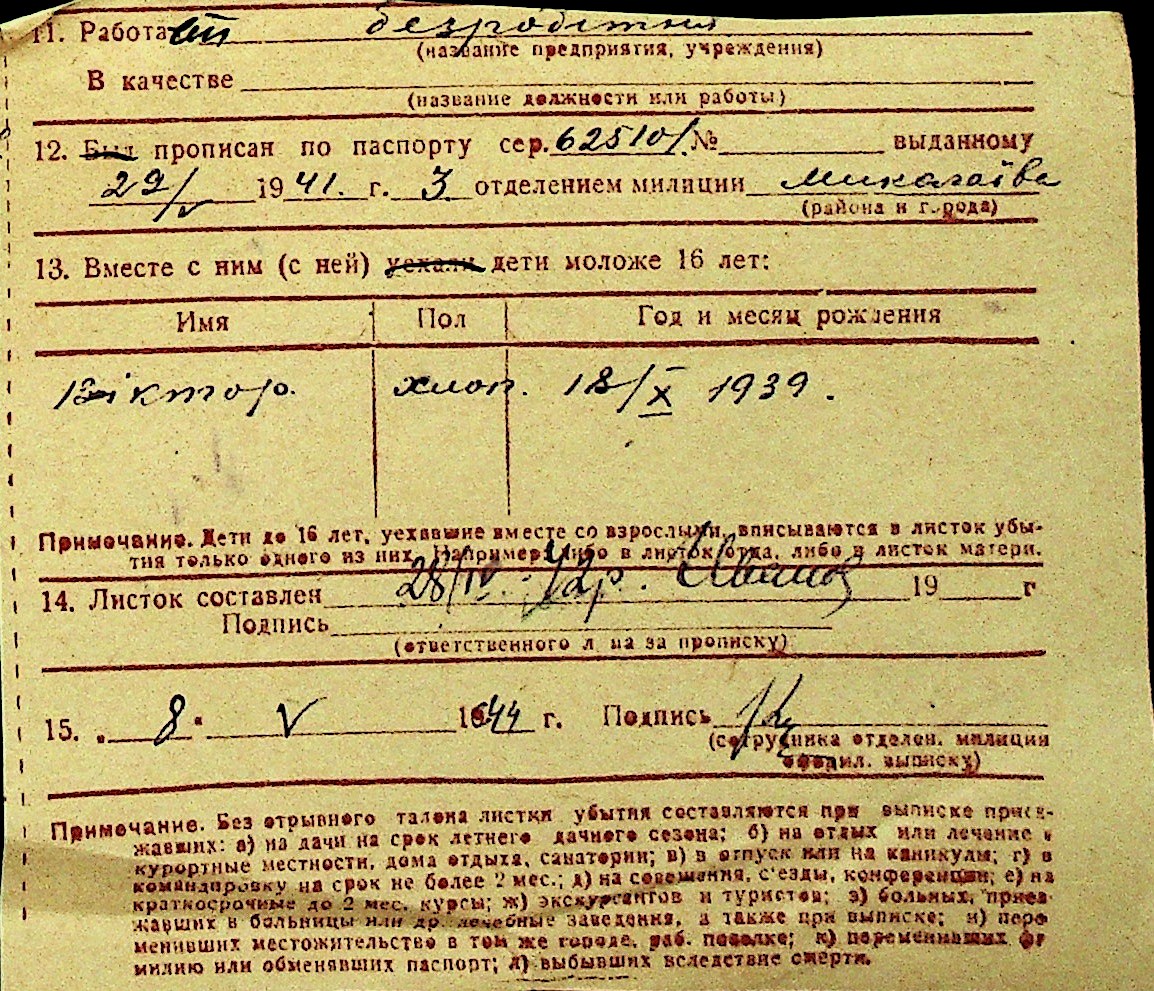 11. Работа безробітня
(название предприятия, учреждения)
В качестве
(название должности или работы)
12. Был прописан по паспорту сер. 625101 № выданному
29/V 1941. г. 3 отделением милиции Миколаїва
(района и города)
13. Вместе с ним (с ней) уехали дети моложе 16 лет:
Имя Пол Год и месяц рождения
Віктор. хлоп. 18/X 1939.
Примечание. Дети до 16 лет, уехавшие вместе со взрослыми, вписываются в листок убы-
тия только одного из них. Например, либо в листок отца, либо в листок матери.
14. Листок составлен 28/IV. 42р. 19 г
Подпись
(ответственного лица за прописку)
15. „ 8 " V 1944 г. Подпись
(сотрудника отделен. милиции
оформл. выписку)
Примечание. Без отрывного талона листки убытия составляются при выписке приез-
жавших: а) на дачи на срок летнего дачного сезона; б) на отдых или лечение в
курортные местности, дома отдыха, санатории; в) в отпуск или на каникулы; г) в
командировку на срок не более 2 мес.; д) на совещания, с'езды, конференции; е) на
краткосрочные до 2 мес. курсы; ж) экскурсантов и туристов; з) больных, приез
жавших в больницы или др. лечебные заведения, а также при выписке; и) пере
менивших местожительство в том же городе, раб. поселке; к) переменивших фа
милию или обменявших паспорт; л) выбывших вследствие смерти.